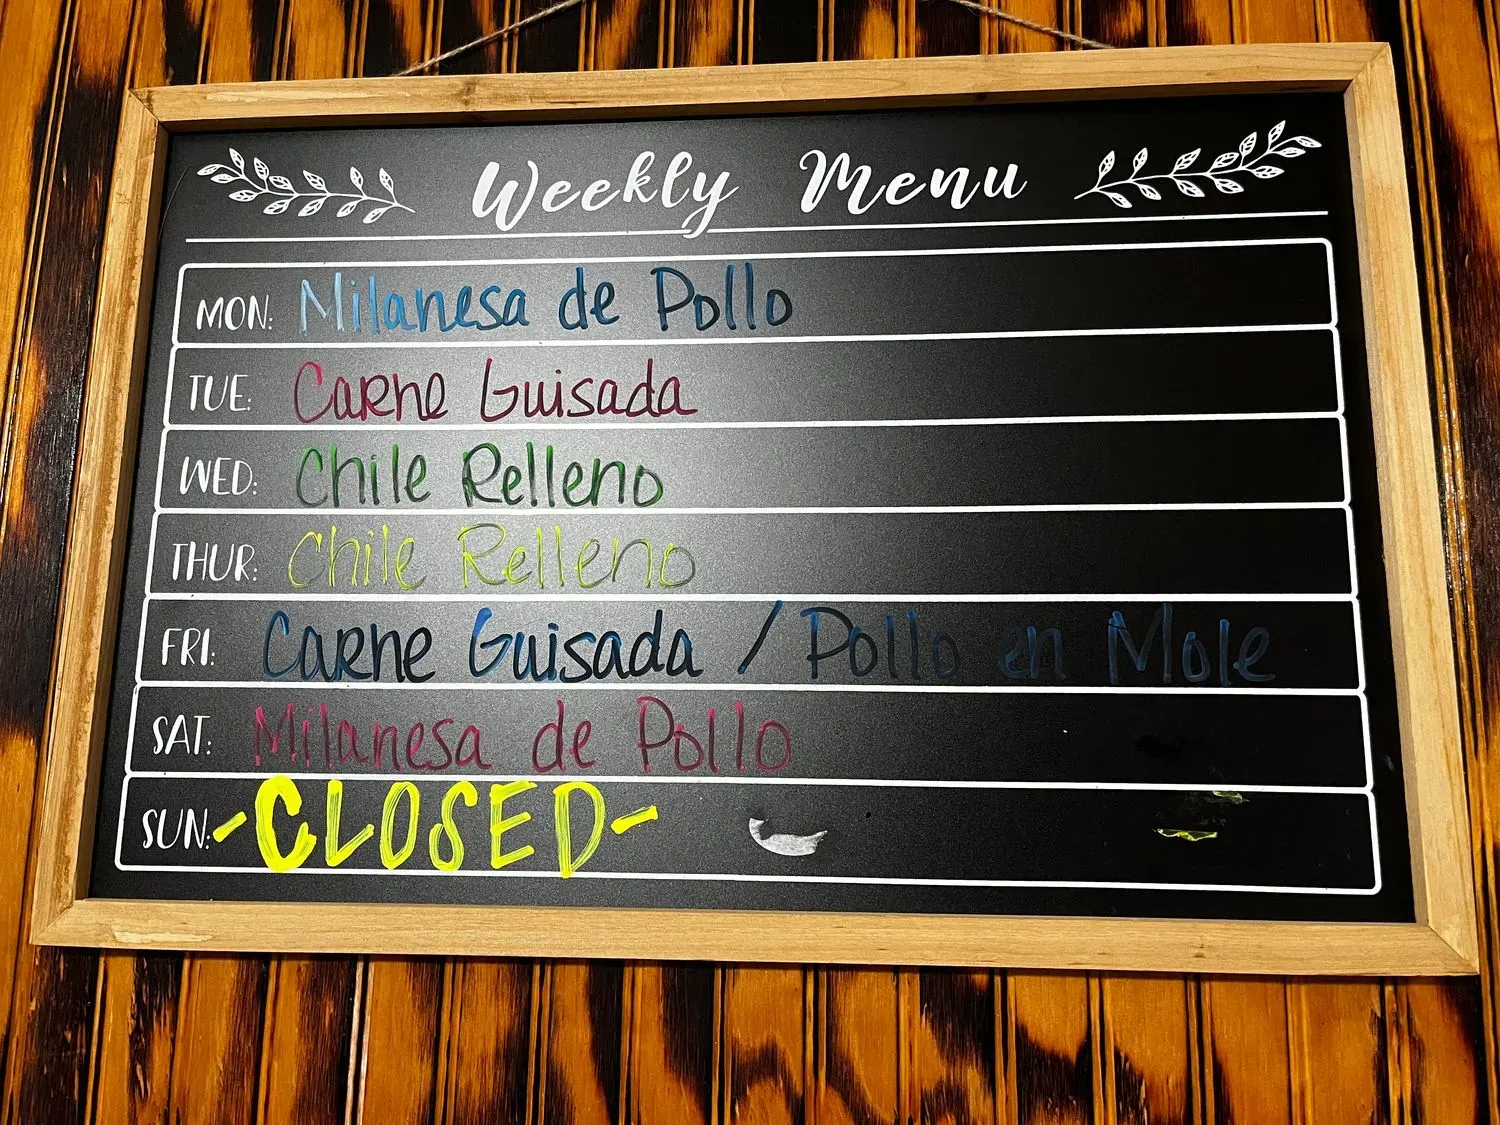 Weekly Menu
MON: Milanesa de Pollo
TUE: Carne Guisada
WED: Chile Relleno
THUR: Chile Relleno
FRI: Carne Guisada / Pollo en Mole
SAT: Milanesa de Pollo
SUN: -CLOSED-